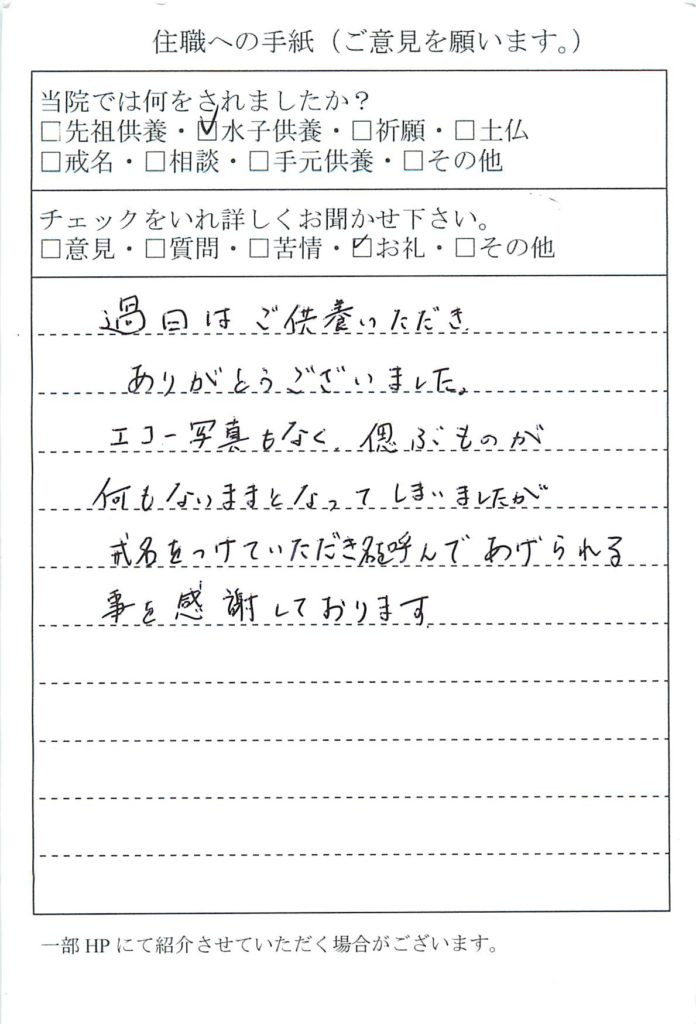 住職への手紙（ご意見を願います。）
当院では何をされましたか？
□先祖供養・☑水子供養・□祈願・□土仏
□戒名・□相談・□手元供養・□その他
チェックをいれ詳しくお聞かせ下さい。
□意見・□質問・□苦情・☑お礼・□その他
過日はご供養いただき
ありがとうございました。
エコー写真もなく、偲ぶものが
何もないままとなってしまいましたが
戒名をつけていただき名を呼んであげられる
事を感謝しております
一部HPにて紹介させていただく場合がございます。